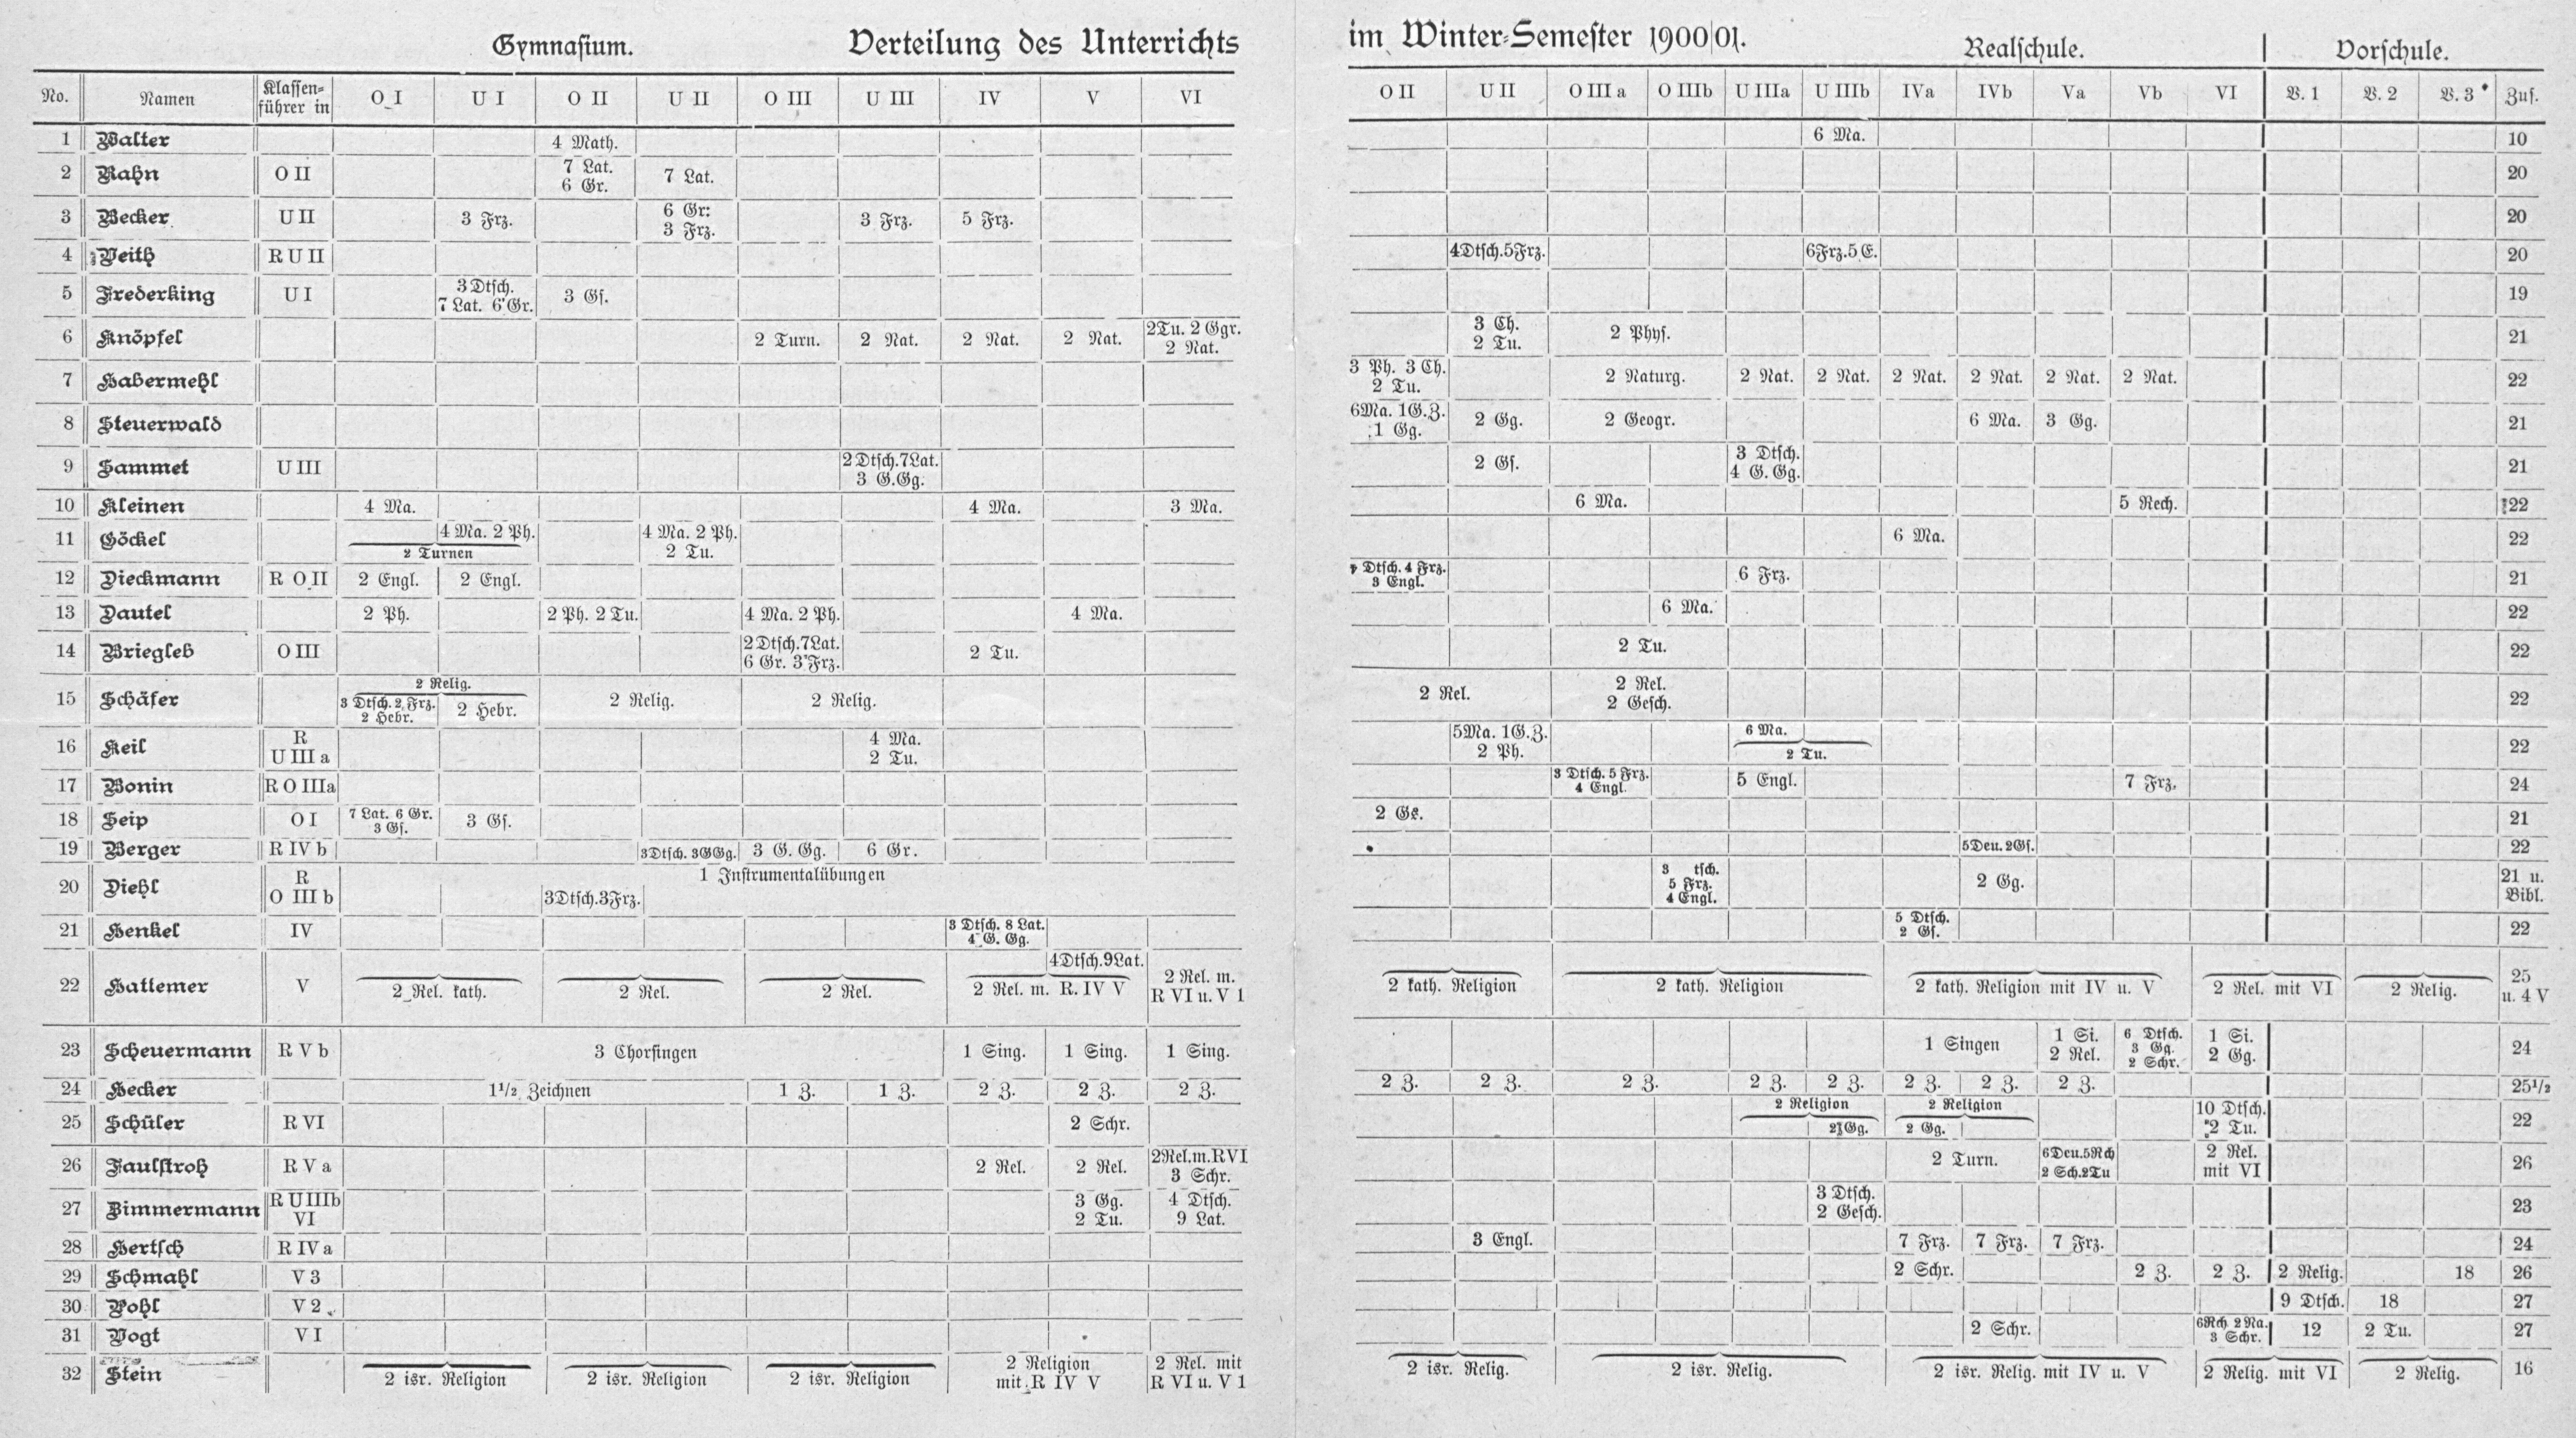 Gymnasium. Verteilung des Unterrichts im Winter-Semester 1900|01. Realschule. Vorschule.
No. Namen Klassen= führer in O I U I O II U II O III U III IV V VI O II U II O III a O IIIb U IIIa U IIIb IVa IVb Va Vb VI V. 1 V. 2 V. 3 Zus.
1 Walter 4 Math. 6 Ma. 10
2 Rahn O II 7 Lat. 6 Gr. 7 Lat. 20
3 Becker U II 3 Frz. 6 Gr: 3 Frz. 3 Frz. 5 Frz. 20
4 Veith R U II 4Dtsch.5Frz. 6Frz.5E. 20
5 Frederking U I 3Dtsch. 7 Lat. 6 Gr. 3 Gs. 19
6 Knöpfel 2 Turn. 2 Nat. 2 Nat. 2 Nat. 2Tu. 2 Ggr. 2 Nat. 3 Ch. 2 Tu. 2 Phys. 21
7 Habermehl 3 Ph. 3 Ch. 2 Tu. 2 Naturg. 2 Nat. 2 Nat. 2 Nat. 2 Nat. 2 Nat. 2 Nat. 22
8 Steuerwald 6Ma. 1G.Z. 1 Gg. 2 Gg. 2 Geogr. 6 Ma. 3 Gg. 21
9 Sammet U III 2Dtsch.7Lat. 3 G.Gg. 2 Gs. 3 Dtsch. 4 G. Gg. 21
10 Kleinen 4 Ma. 4 Ma. 3 Ma. 6 Ma. 5 Rech. 22
11 Göckel 4 Ma. 2 Ph. 2 Turnen 4 Ma. 2 Ph. 2 Tu. 6 Ma. 22
12 Dieckmann R O II 2 Engl. 2 Engl. Dtsch. 4 Frz. 3 Engl. 6 Frz. 21
13 Dautel 2 Ph. 2 Ph. 2 Tu. 4 Ma. 2 Ph. 4 Ma. 6 Ma. 22
14 Briegleb O III 2Dtsch.7Lat. 6 Gr. 3 Frz. 2 Tu. 2 Tu. 22
15 Schäfer 2 Relig. 3 Dtsch. 2 Frz. 2 Hebr. 2 Hebr. 2 Relig. 2 Relig. 2 Rel. 2 Rel. 2 Gesch. 22
16 Keil R U III a 4 Ma. 2 Tu. 5Ma. 1G.Z. 2 Ph. 6 Ma. 2 Tu. 22
17 Bonin R O IIIa 3 Dtsch. 5 Frz. 4 Engl. 5 Engl. 7 Frz. 24
18 Seip O I 7 Lat. 6 Gr. 3 Gs. 3 Gs. 2 Gs. 21
19 Berger R IV b 3Dtsch. 3GGg. 3 G. Gg. 6 Gr. 5Deu. 2Gs. 22
20 Diehl R O III b 1 Instrumentalübungen 3Dtsch.3Frz. 3 tsch. 5 Frz. 4 Engl. 2 Gg. 21 u. Bibl.
21 Henkel IV 3 Dtsch. 8 Lat. 4 G. Gg. 5 Dtsch. 2 Gs. 22
22 Hattemer V 2 Rel. kath. 2 Rel. 2 Rel. 4Dtsch.9Lat. 2 Rel. m. R. IV V 2 Rel. m. R VI u. V 1 2 kath. Religion 2 kath. Religion 2 kath. Religion mit IV u. V 2 Rel. mit VI 2 Relig. 25 u. 4 V
23 Scheuermann R V b 3 Chorsingen 1 Sing. 1 Sing. 1 Sing. 1 Singen 1 Si. 2 Rel. 6 Dtsch. 3 Gg. 2 Schr. 1 Si. 2 Gg. 24
24 Hecker 1½ Zeichnen 1 Z. 1 Z. 2 Z. 2 Z. 2 Z. 2 Z. 2 Z. 2 Z. 2 Z. 2 Z. 2 Z. 2 Z. 2 Z. 25½
25 Schüler R VI 2 Schr. 2 Religion 2 Gg. 2 Religion 2 Gg. 10 Dtsch. 2 Tu. 22
26 Faulstroh R V a 2 Rel. 2 Rel. 2Rel.m.RVI 3 Schr. 2 Turn. 6Deu.5Rch 2 Sch.2Tu 2 Rel. mit VI 26
27 Zimmermann R U IIIb VI 3 Gg. 2 Tu. 4 Dtsch. 9 Lat. 3 Dtsch. 2 Gesch. 23
28 Hertsch R IV a 3 Engl. 7 Frz. 7 Frz. 7 Frz. 24
29 Schmahl V 3 2 Schr. 2 Z. 2 Z. 2 Relig. 18 26
30 Pohl V 2 9 Dtsch. 18 27
31 Vogt V I 2 Schr. 6Rch 2 Na. 3 Schr. 12 2 Tu. 27
32 Stein 2 isr. Religion 2 isr. Religion 2 isr. Religion 2 Religion mit R IV V 2 Rel. mit R VI u. V 1 2 isr. Relig. 2 isr. Relig. 2 isr. Relig. mit IV u. V 2 Relig. mit VI 2 Relig. 16